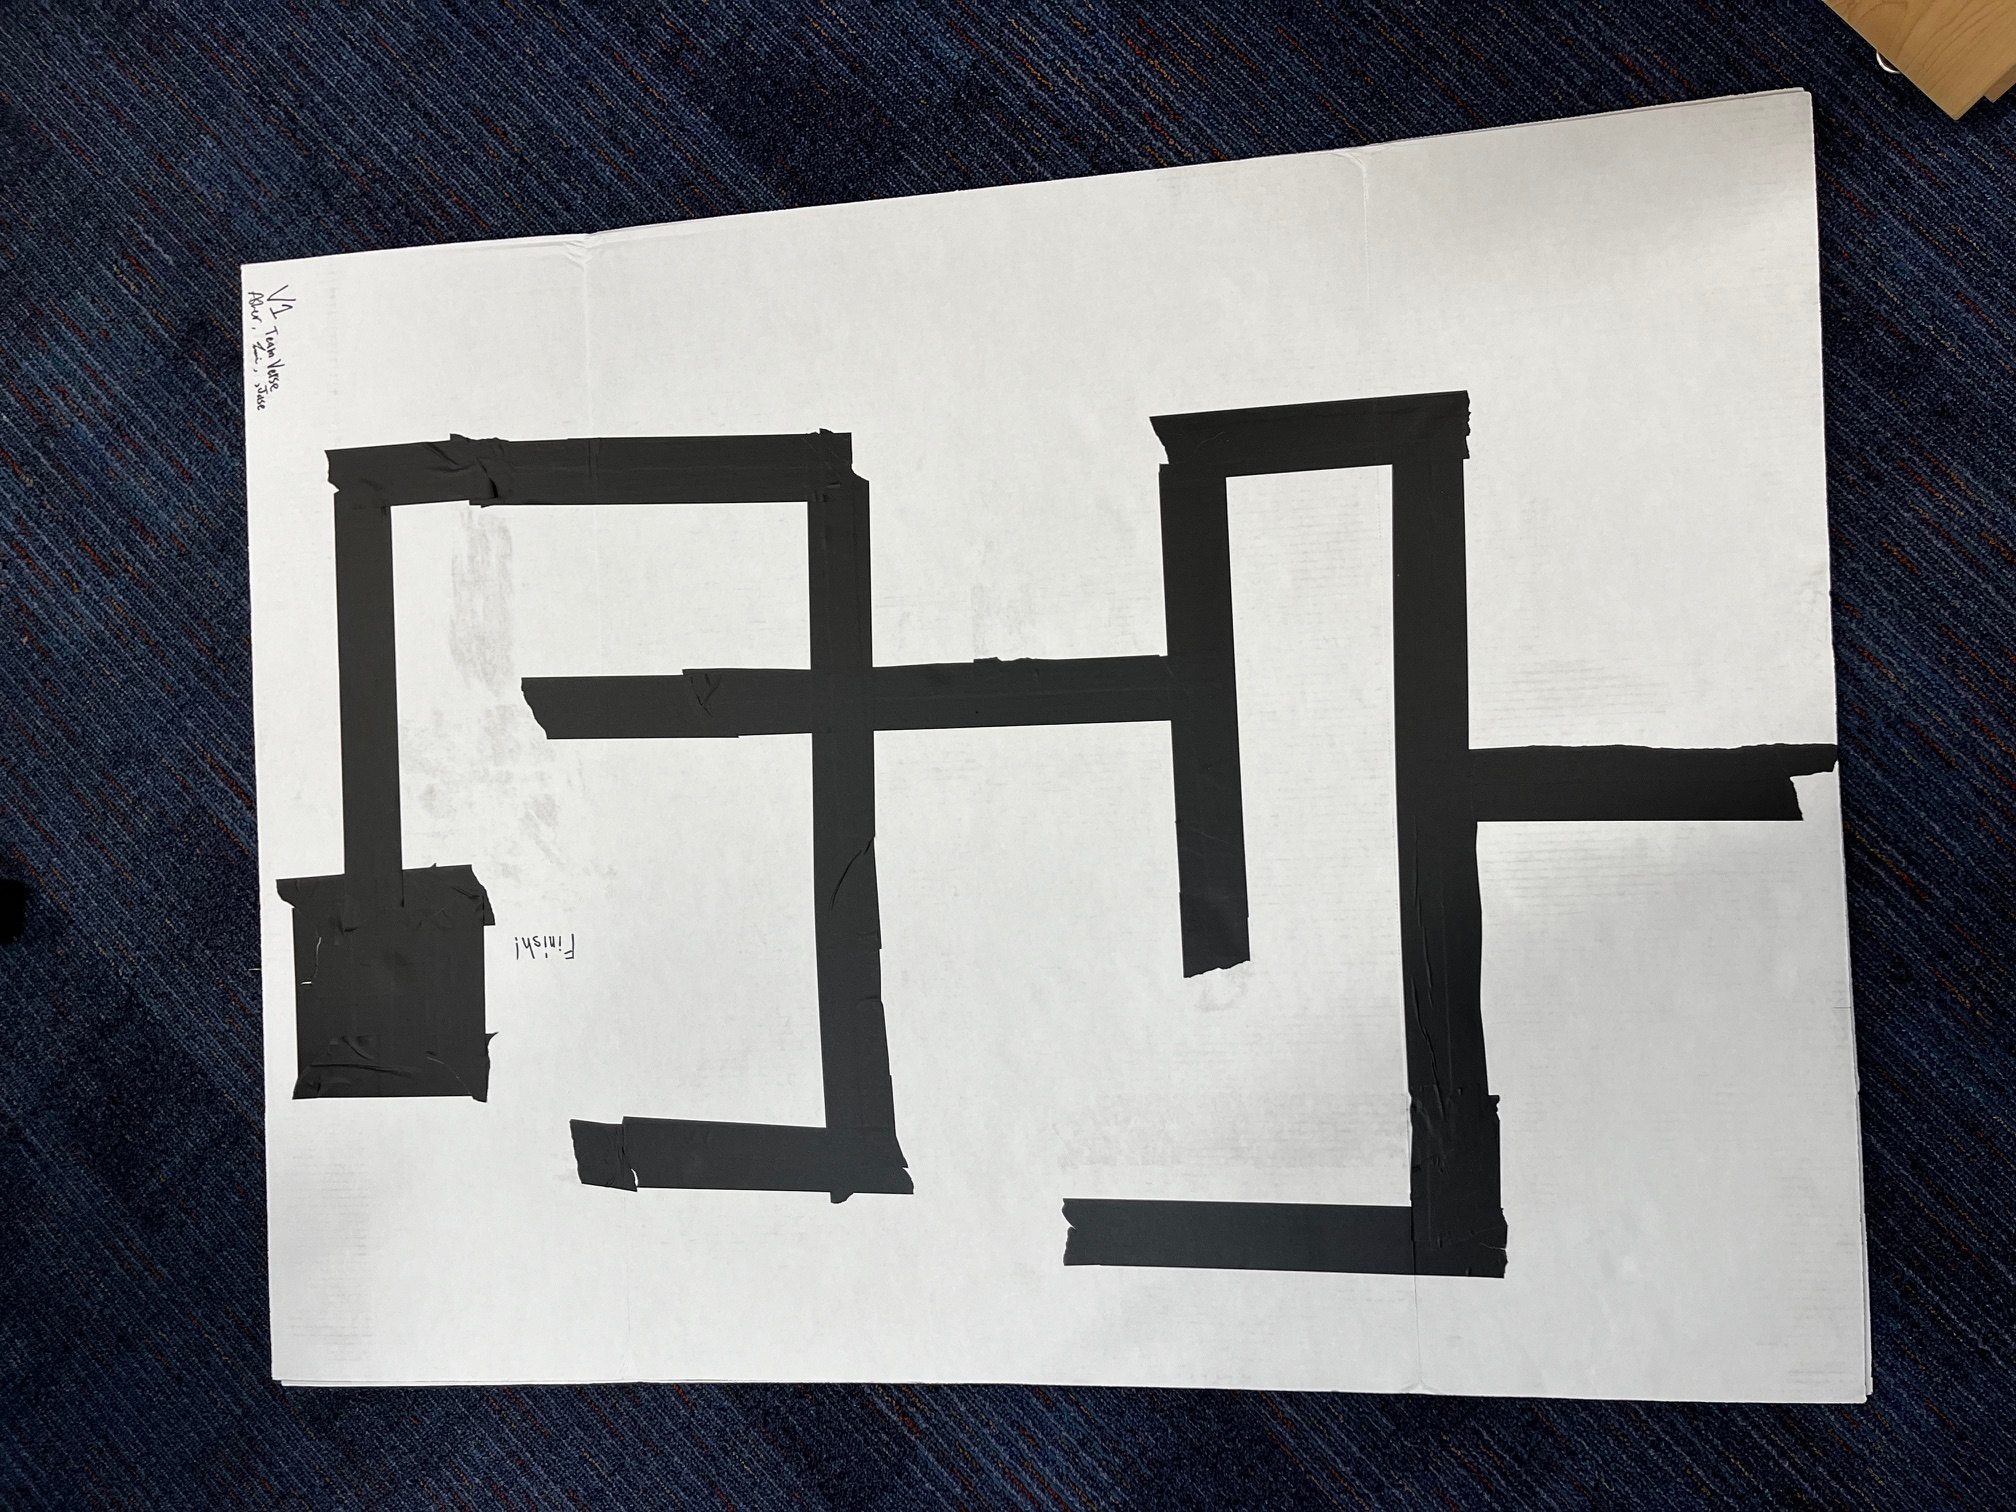 V1 Team Verse
Asher, , Jase
Finish!